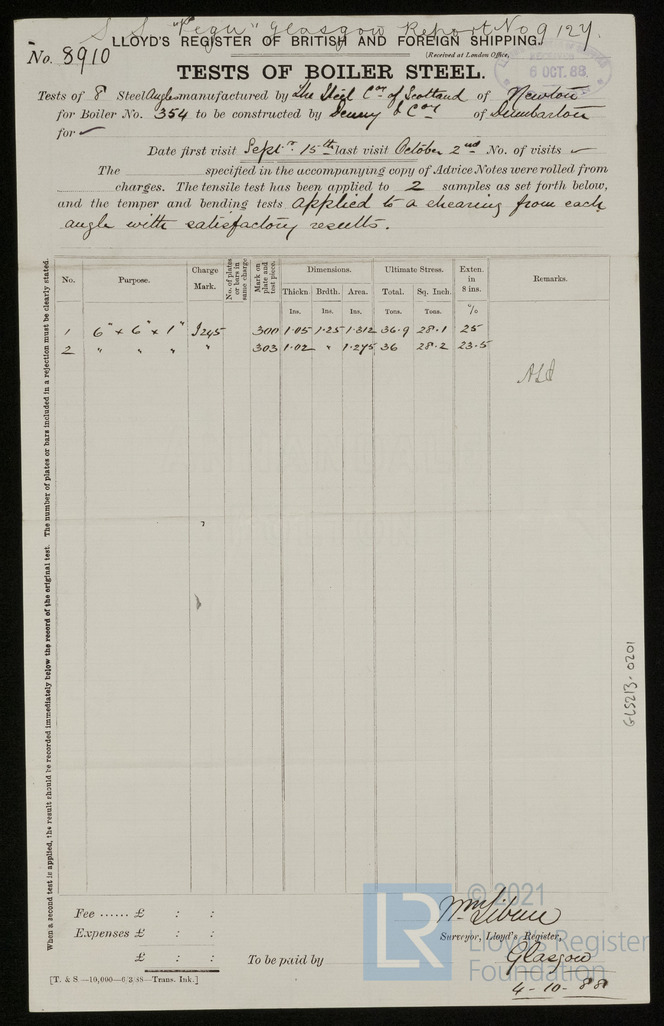 S.S. "Pegu" Glasgow Report No 9127.
LLOYD'S REGISTER OF BRITISH AND FOREIGN SHIPPING.
No. 8910
(Received at London Office,
6 OCT. 88
TESTS OF BOILER STEEL.
Tests of 8 Steel Angles manufactured by The Steel Coy of Scotland of Newton
for Boiler No. 354 to be constructed by Denny & Coy of Dumbarton
for ✓
Date first visit Septr 15th last visit October 2nd No. of visits ✓
The specified in the accompanying copy of Advice Notes were rolled from
charges. The tensile test has been applied to 2 samples as set forth below,
and the temper and bending tests applied to a shearing from each
angle with satisfactory results.
When a second test is applied, the result should be recorded immediately below the record of the original test. The number of plates or bars included in a rejection must be clearly stated.
No. Purpose. Charge Mark. No. of plates or bars in same charge Mark on plate and test piece. Dimensions. Ultimate Stress. Exten. in 8 ins. Remarks.
Thickn Brdth. Area. Total. Sq. Inch.
Ins. Ins. Ins. Tons. Tons. %
1 6" x 6" x 1" 245 300 1.05 1.25 1.312 36.9 28.1 25
2 " " " " 303 1.02 " 1.275 36 28.2 23.5
GLS213-0201
Fee ...... £ : :
Expenses £ : :
£ : :
To be paid by
Surveyor, Lloyd's Register,
Glasgow
4-10-88
[T. & S.—10,000—6/3/88—Trans. Ink.]
LR
© 2021
Lloyd's Register
Foundation